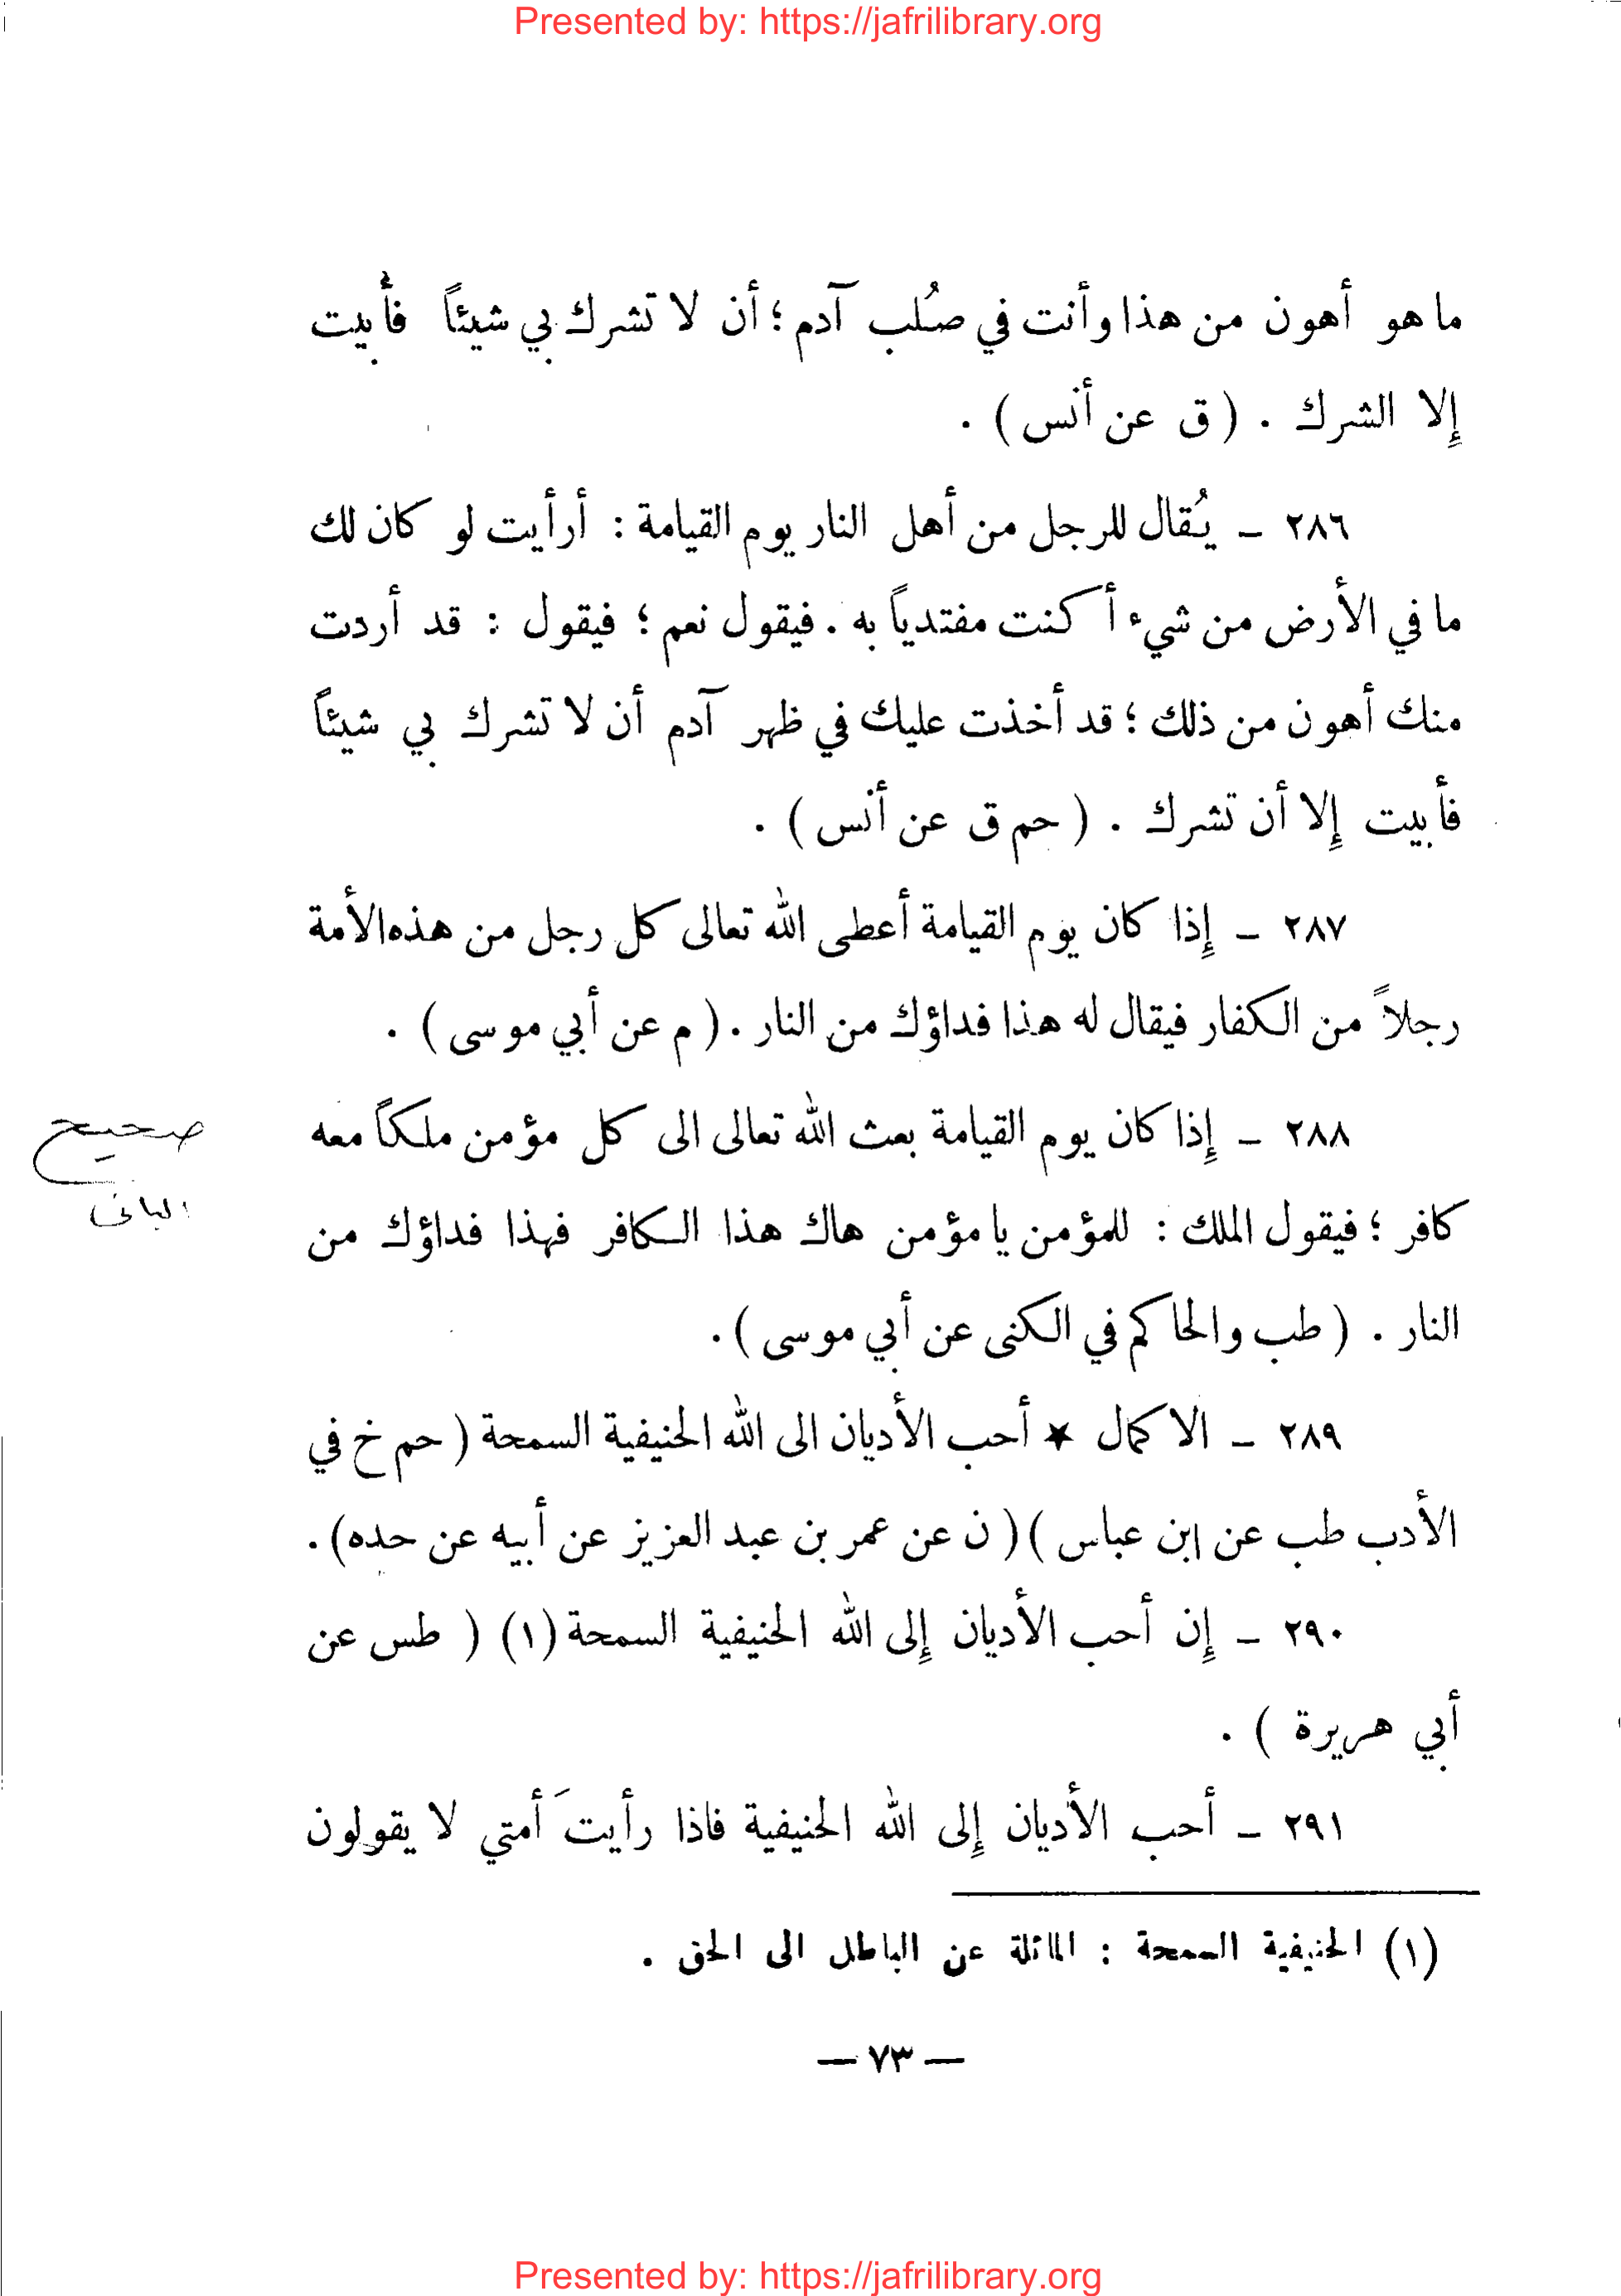 Presented by: https://jafrilibrary.org
ما هو أهون من هذا وأنت في صُلب آدم ؛ أن لا تشرك بي شيئاً فأبيت
إِلا الشرك . ( ق عن أنس ) .
٢٨٦ – يُقال للرجل من أهل النار يوم القيامة : أرأيت لو كان لك
ما في الأرض من شيء أكنت مفتدياً به . فيقول نعم ؛ فيقول : قد أردت
منك أهون من ذلك ؛ قد أخذت عليك في ظهر آدم أن لا تشرك بي شيئاً
فأبيت إِلا أن تشرك . ( حم ق عن أنس ) .
٢٨٧ – إِذا كان يوم القيامة أعطى الله تعالى كل رجل من هذه الأمة
رجلاً من الكفار فيقال له هذا فداؤك من النار . ( م عن أبي موسى ) .
٢٨٨ – إِذا كان يوم القيامة بعث الله تعالى الى كل مؤمن ملكاً معه
صحيح
كافر ؛ فيقول الملك : للمؤمن يا مؤمن هاك هذا الكافر فهذا فداؤك من
البانى
النار . ( طب والحاكم في الكنى عن أبي موسى ) .
٢٨٩ – الاكمال ★ أحب الأديان الى الله الحنيفية السمحة ( حم خ في
الأدب طب عن ابن عباس ) ( ن عن عمر بن عبد العزيز عن أبيه عن حده ) .
٢٩٠ – إِن أحب الأديان إِلى الله الحنيفية السمحة (١) ( طس عن
أبي هريرة ) .
٢٩١ – أحب الأديان إِلى الله الحنيفية فاذا رأيتَ أمتي لا يقولون
(١) الحنيفية السمحة : المائلة عن الباطل الى الحق .
— ٧٣ —
Presented by: https://jafrilibrary.org